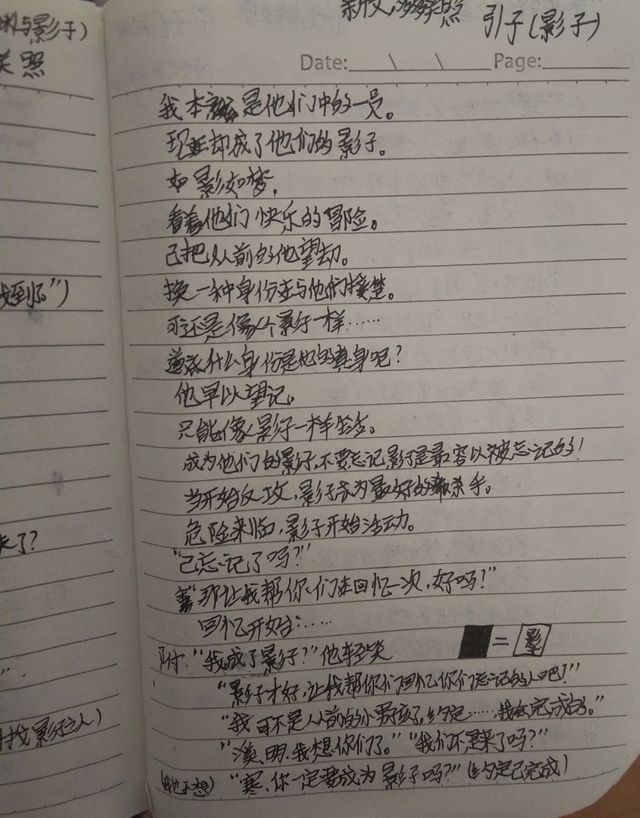 引子(影子)
Date: \ \ Page:
与影子)
关照
我本该是他们中的一员。
现在却成了他们的影子。
如影如梦,
看着他们快乐的冒险。
己把从前的他望却。
换一种身份在与他们接楚。
可还是像个影子一样……
什么身份是他的真身呢?
他早以望记。
只能像影子一样坐在。
成为他们的影子,不要忘记影子是最容以被忘记的!
当开始反攻,影子亦为最好的杀手。
危险来临,影子开始活动。
到了")
"己忘记了吗?"
了?
"那让我帮你们在回忆一次,好吗?"
回忆开始:……
附:"我成了影子?"他轻笑 ■=影
"影子才好,让我帮你们回忆你们忘记的人吧!"
"我可不是从前的小孩了,约定……我会完成的。"
找影之人)
"溪,明,我想你们了。""我们不是来了吗?"
"寒,你一定要成为影子吗?"(约定己完成)